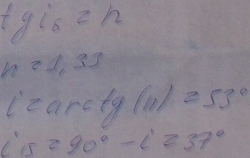 tg i₆ = n
n = 1,33
i = arctg (n) = 53°
i₁₅ = 90° - i = 37°